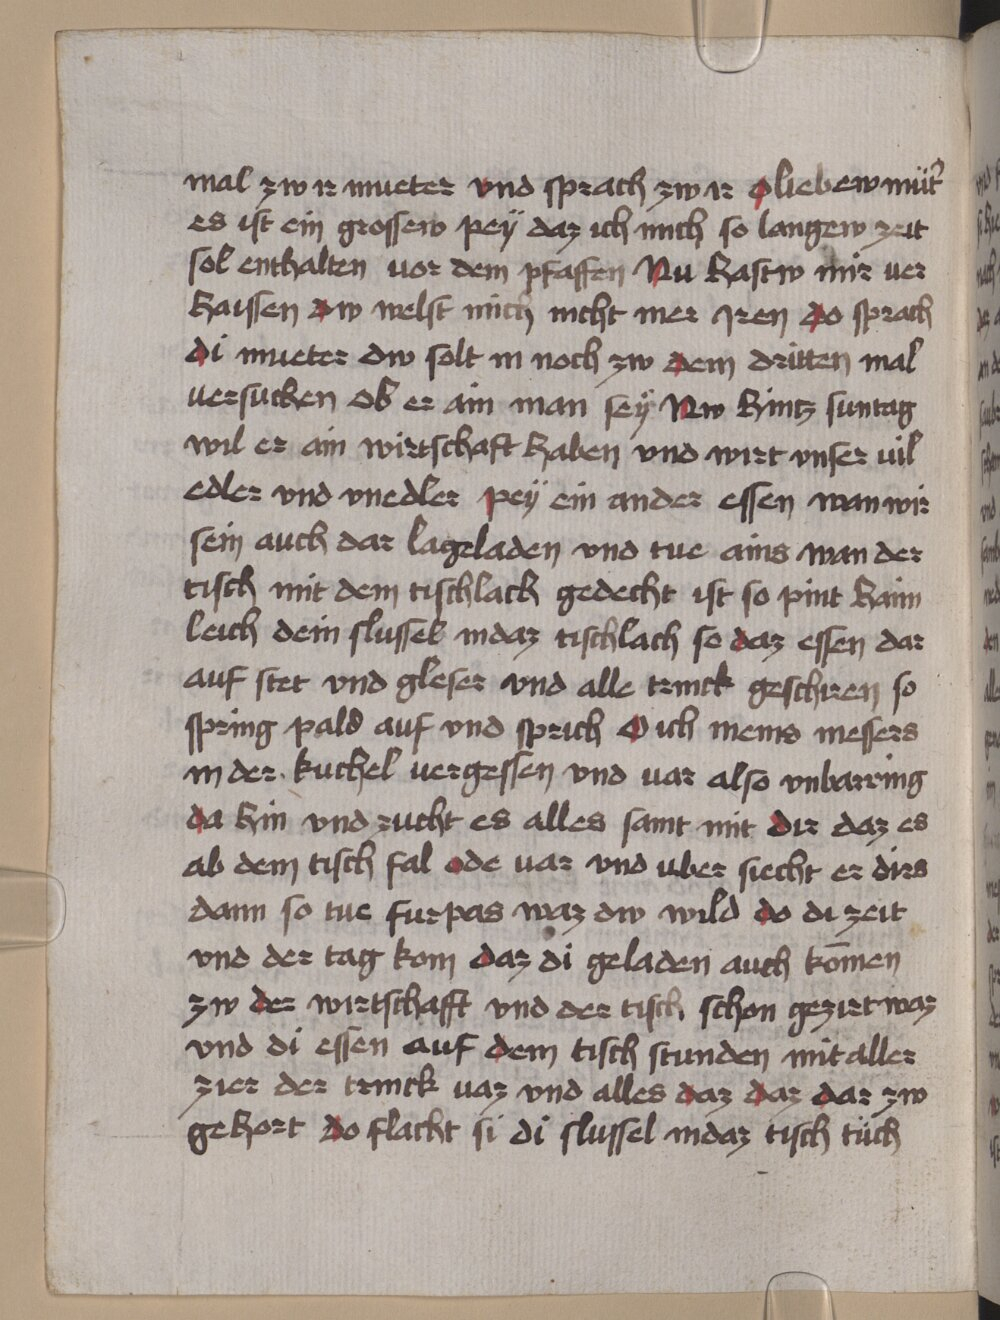 mal zw ir mueter vnd sprach zw ir O liebew müt̄
es ist ein grossew pey daz ich mich so langew zeit
sol enthalten vor dem pfaffen Nu hastw mir ver
haissen dw welst mich nicht mer Iren do sprach
di mueter dw solt in noch zw dem dritten mal
versuchen ob er ain man seÿ Nw hintz suntag
wil er ain wirtschaft haben vnd wirt vnser vil
edler vnd vnedler peÿ ein ander essen wan wir
sein auch dar lageladen vnd tue ains wan der
tisch mit dem tischlach gedecht ist so pint haim
leich dein slussel in daz tischlach so daz essen dar
auf stet vnd gleser vnd alle trinck geschiren so
spring pald auf vnd sprich O ich meins messers
in der kuchel vergessen vnd var also vnbarring
da hin vnd zucht es alles samt mit dir daz es
ab dem tisch fal ode var vnd vber siecht er dirs
dann so tue furpas waz dw wild do di zeit
vnd der tag kom daz di geladen auch kōmen
zw der wirtschafft vnd der tisch schon gezirt waz
vnd di essen auf dem tisch stunden mit aller
zier der trinck vaz vnd alles daz daz dar zw
gehort do flacht si di slussel in daz tisch tüch